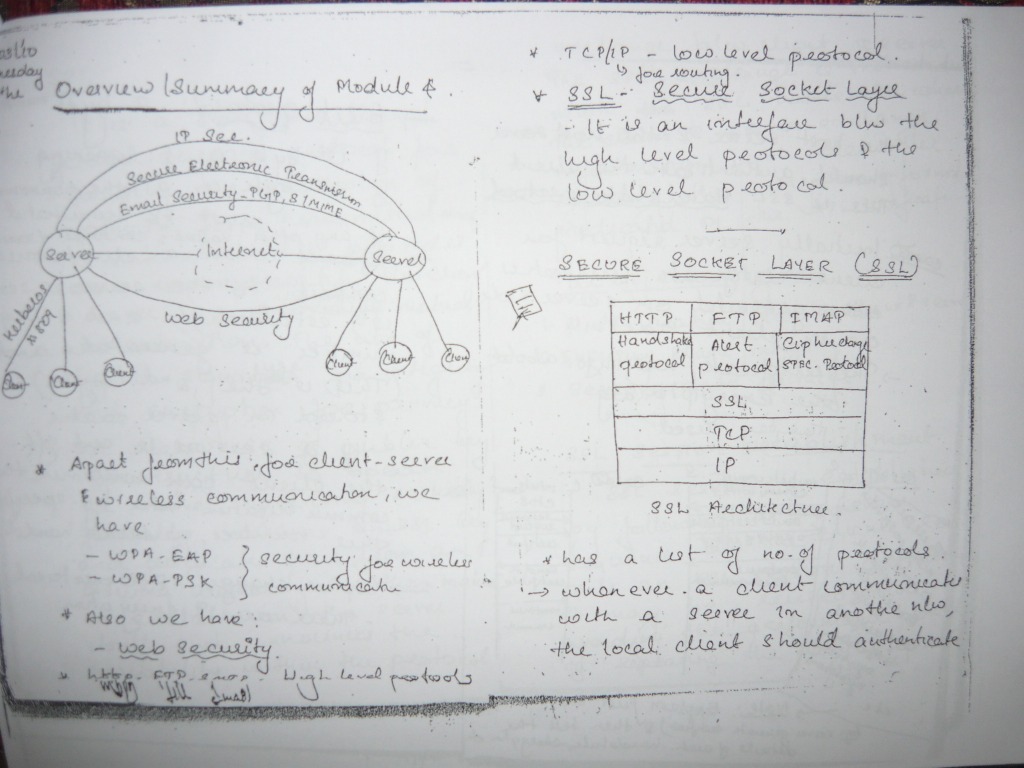 Overview / Summary of Module
IP Sec.
Secure Electronic Transmission
Email Security - PGP, S/MIME
Server
Internet
Server
Web Security
Kerberos
Client
Client
Client
Client
Client
* Apart from this, for client-server
& wireless communication, we
have
- WPA-EAP
- WPA-PSK
} security for wireless
communication
* Also we have:
- web security.
* http, FTP High level protocols
* TCP/IP - low level protocol.
↳ for routing.
* SSL - Secure Socket Layer
- It is an interface b/w the
high level protocols & the
low level protocol.
SECURE SOCKET LAYER (SSL)
HTTP FTP IMAP
Handshake Alert Cipher change
protocol protocol SPEC. Protocol
SSL
TCP
IP
SSL Architecture.
* has a list of no. of protocols.
→ whenever a client communicate
with a server in another n/w,
the local client should authenticate